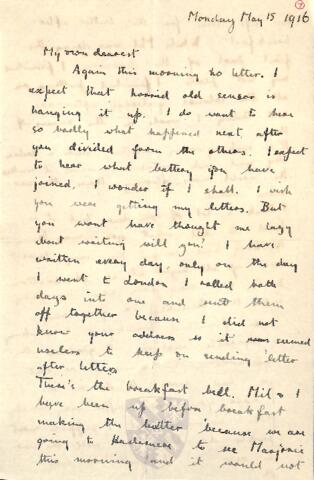 Monday May 15 1916
My own dearest
Again this morning no letter. I
expect that horrid old censor is
hanging it up. I do want to hear
so badly what happened next, after
you divided form the others. I expect
to hear what battery you have
joined. I wonder if I shall. I wish
you were getting my letters. But
you wont have thought me lazy
about writing will you? I have
written every day, only on the day
I went to London I rolled both
days into one and sent them
off together because I did not
know your address so it seemed
useless to keep on sending letter
after letters
There's the breakfast bell. Mil & I
have been up before breakfast
making the butter because we are
going to Haslemere to see Marjorie
this morning and it would not